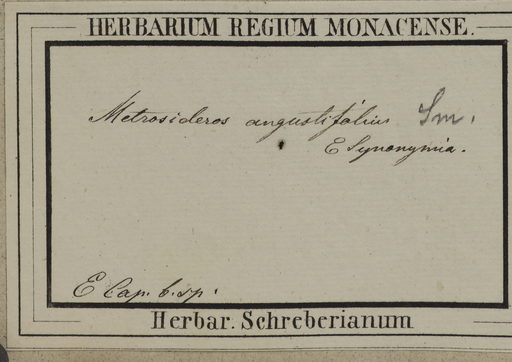 HERBARIUM REGIUM MONACENSE.
Metrosideros angustifolius Sm.
E Synonymia.
E Cap. b. sp.
Herbar. Schreberianum